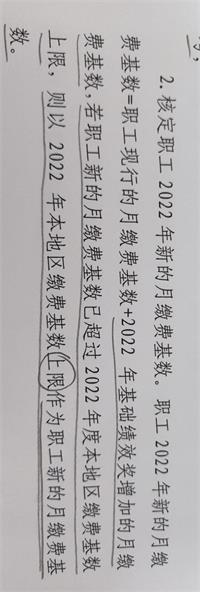 2. 核定职工 2022 年新的月缴费基数。职工 2022 年新的月缴
费基数=职工现行的月缴费基数+2022 年基础绩效奖增加的月缴
费基数，若职工新的月缴费基数已超过 2022 年度本地区缴费基数
上限，则以 2022 年本地区缴费基数上限作为职工新的月缴费基
数。